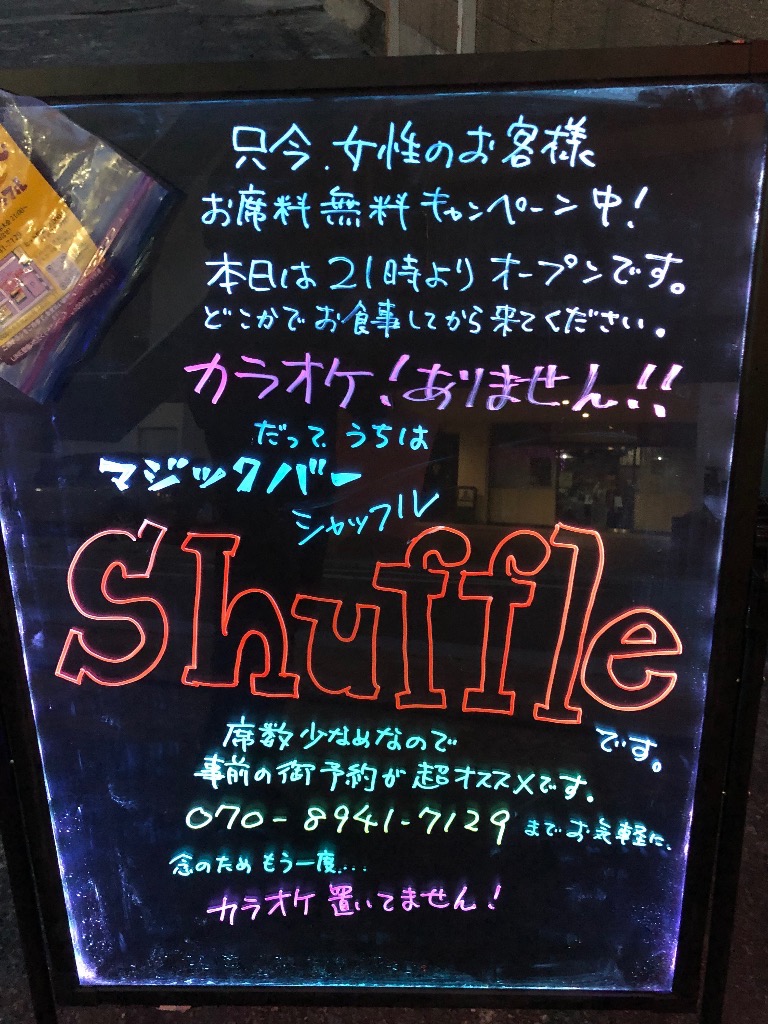 只今、女性のお客様
お席料無料キャンペーン中!
本日は21時よりオープンです。
どこかでお食事してから来てください。
カラオケ!ありません!!
だって、うちは
マジックバー
シャッフル
Shuffle
です。
席数少なめなので
事前の御予約が超オススメです。
070-8941-7129までお気軽に、
念のためもう一度....
カラオケ置いてません!